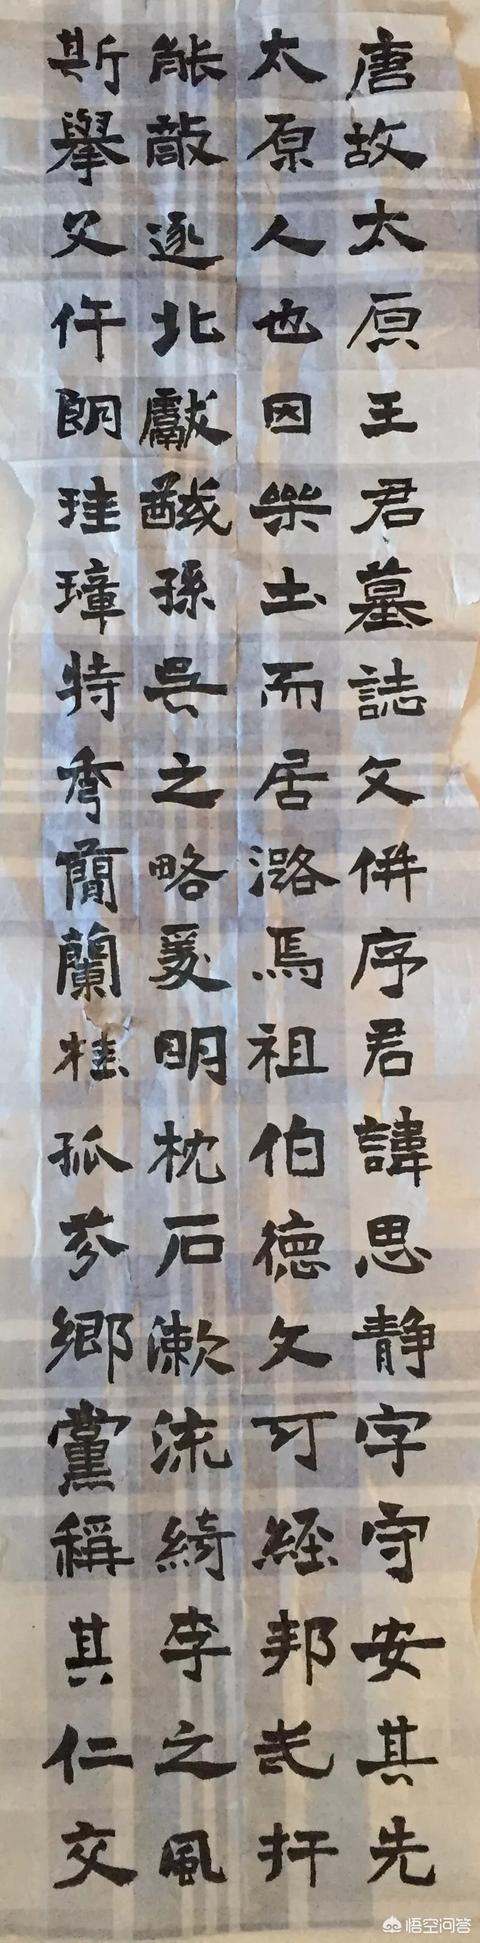 唐故太原王君墓誌文併序君諱思静字守安其先
太原人也因樂土而居潞焉祖伯德文可經邦武扞
能敵逐北獻馘孫吳之略爰明枕石漱流綺李之風
斯舉父仵朗珪璋特秀蘭蘭桂孤芬鄉黨稱其仁交
悟空问答